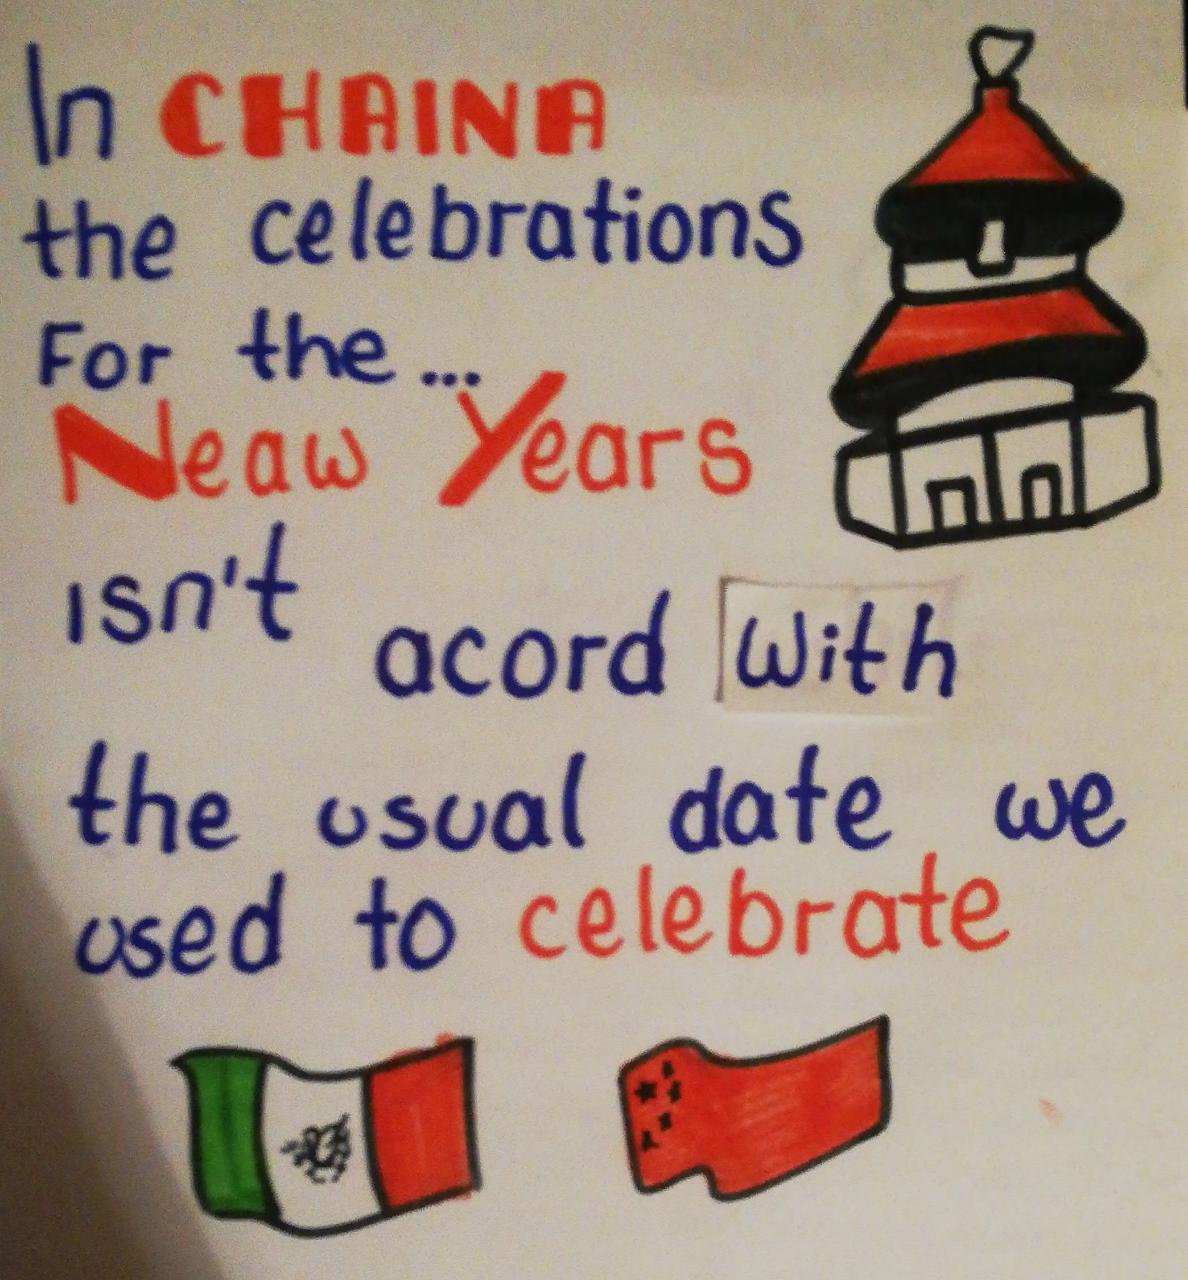 In CHAINA
the celebrations
For the...
Neaw Years
isn't acord with
the usual date we
used to celebrate